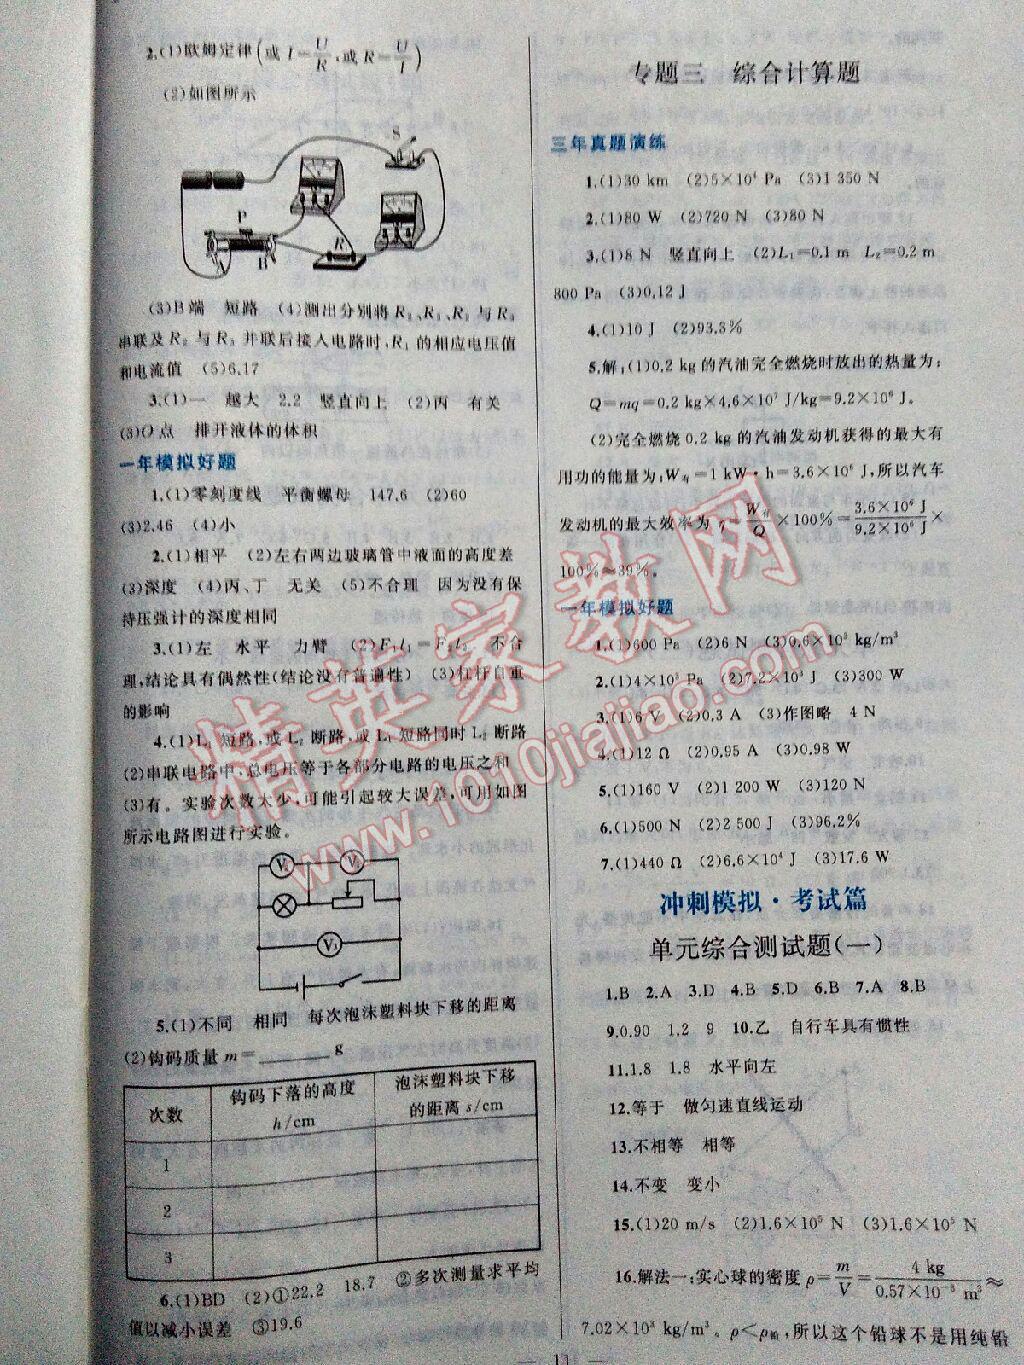 2.(1)欧姆定律(或 I=U/R,或 R=U/I)
(2)如图所示
S
P
A
B
R
(3)B端 短路 (4)测出分别将 R₂、R₁、R₁ 与 R₃
串联及 R₂ 与 R₃ 并联后接入电路时,R₁ 的相应电压值
和电流值 (5)6.17
3.(1)一 越大 2.2 竖直向上 (2)丙 有关
(3)O点 排开液体的体积
一年模拟好题
1.(1)零刻度线 平衡螺母 147.6 (2)60
(3)2.46 (4)小
2.(1)相平 (2)左右两边玻璃管中液面的高度差
(3)深度 (4)丙、丁 无关 (5)不合理 因为没有保
持压强计的深度相同
3.(1)左 水平 力臂 (2)F₁l₁=F₂l₂ 不合
理,结论具有偶然性(结论没有普遍性) (3)杠杆自重
的影响
4.(1)L₁ 短路,或 L₂ 断路,或 L₁ 短路同时 L₂ 断路
(2)串联电路中,总电压等于各部分电路的电压之和
(3)有。实验次数太少,可能引起较大误差,可用如图
所示电路图进行实验。
V V
V₁
5.(1)不同 相同 每次泡沫塑料块下移的距离
(2)钩码质量 m=______g
次数 钩码下落的高度 h/cm 泡沫塑料块下移的距离 s/cm
1
2
3
6.(1)BD (2)①22.2 18.7 ②多次测量求平均
值以减小误差 ③19.6
专题三 综合计算题
三年真题演练
1.(1)30 km (2)5×10⁴ Pa (3)1 350 N
2.(1)80 W (2)720 N (3)80 N
3.(1)8 N 竖直向上 (2)L₁=0.1 m L₂=0.2 m
800 Pa (3)0.12 J
4.(1)10 J (2)93.3%
5.解:(1)0.2 kg的汽油完全燃烧时放出的热量为:
Q=mq=0.2 kg×4.6×10⁷ J/kg=9.2×10⁶ J。
(2)完全燃烧 0.2 kg 的汽油发动机获得的最大有
用功的能量为:W有=1 kW·h=3.6×10⁶ J,所以汽车
发动机的最大效率为 η=W有/Q×100%=3.6×10⁶ J/9.2×10⁶ J×
100%≈39%。
一年模拟好题
1.(1)600 Pa (2)6 N (3)0.6×10³ kg/m³
2.(1)4×10³ Pa (2)7.2×10³ J (3)300 W
3.(1)6 V (2)0.3 A (3)作图略 4 N
4.(1)12 Ω (2)0.95 A (3)0.98 W
5.(1)160 V (2)1 200 W (3)120 N
6.(1)500 N (2)2 500 J (3)96.2%
7.(1)440 Ω (2)6.6×10⁴ J (3)17.6 W
冲刺模拟·考试篇
单元综合测试题(一)
1.B 2.A 3.D 4.B 5.D 6.B 7.A 8.B
9.0.90 1.2 9 10.乙 自行车具有惯性
11.1.8 1.8 水平向左
12.等于 做匀速直线运动
13.不相等 相等
14.不变 变小
15.(1)20 m/s (2)1.6×10⁵ N (3)1.6×10⁵ N
16.解法一:实心球的密度 ρ=m/V=4 kg/0.57×10⁻³ m³≈
7.02×10³ kg/m³。ρ<ρ铅,所以这个铅球不是用纯铅
11
精英家教网
www.1010jiajiao.com